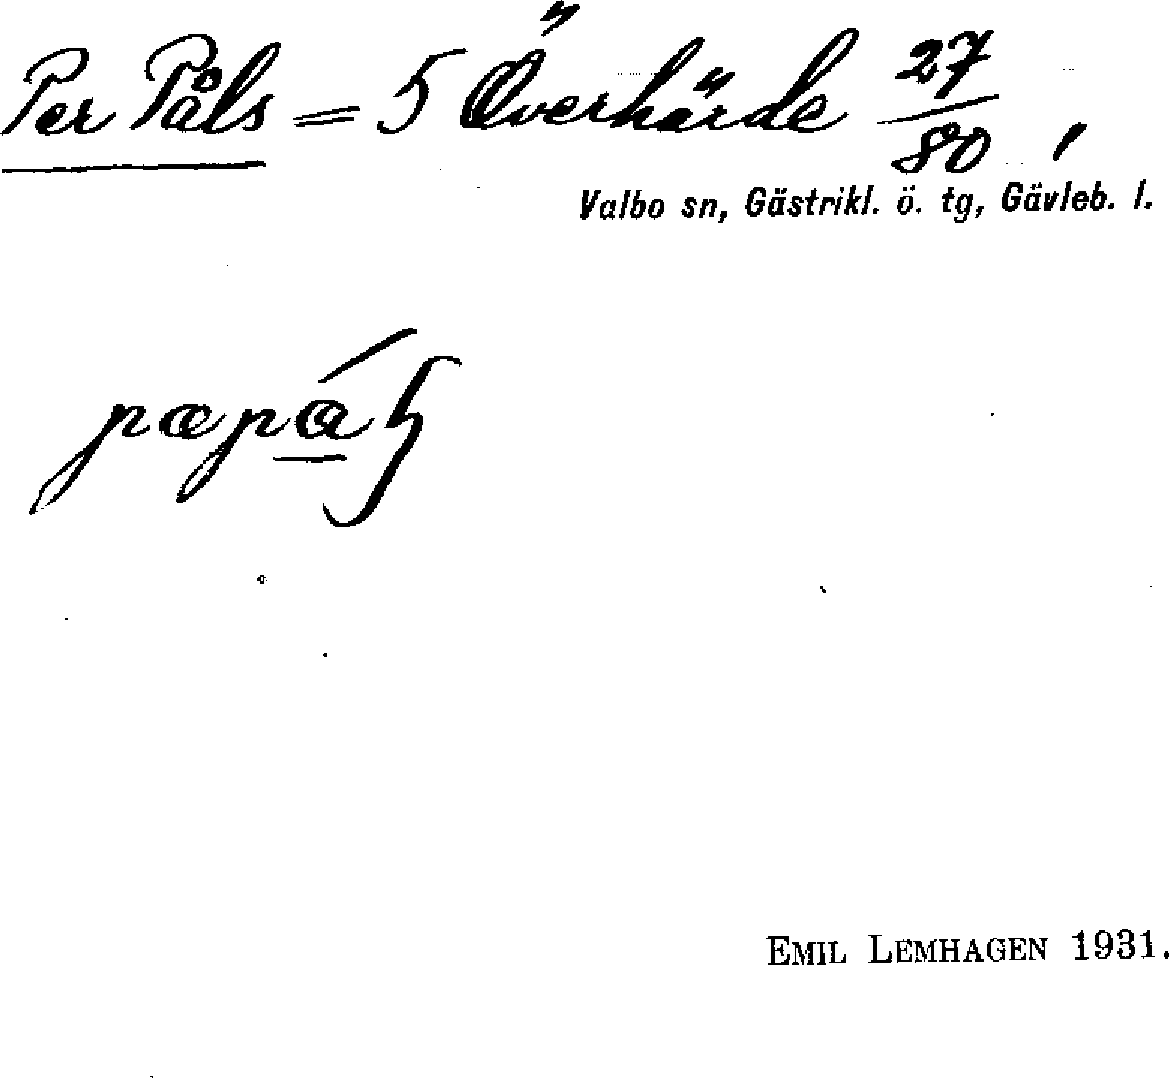 Per Påls = 5 Överhärde 27/80,
Valbo sn, Gästrikl. ö. tg, Gävleb. l.
EMIL LEMHAGEN 1931.